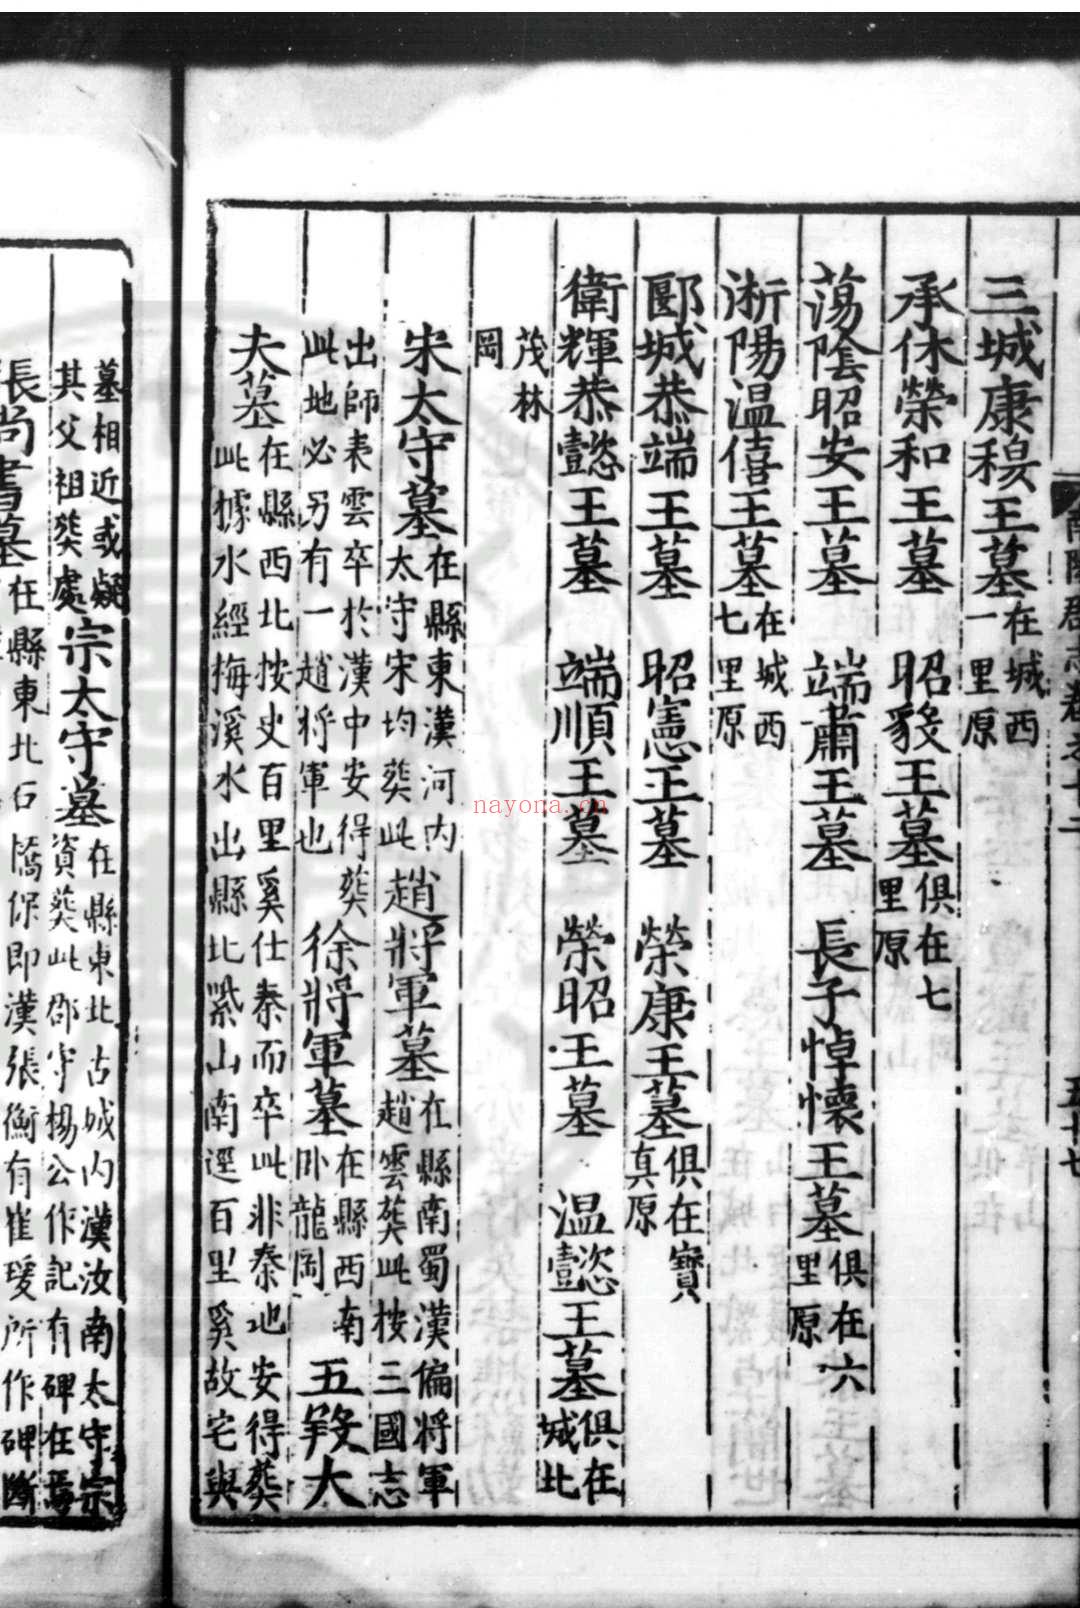 南陽郡志卷之十二 五十七
三城康穆王墓在城西一里原
承休榮和王墓 昭毅王墓俱在七里原
蕩陰昭安王墓 端肅王墓 長子悼懷王墓俱在六里原
淅陽溫僖王墓在城西七里原
郾城恭端王墓 昭憲王墓 榮康王墓俱在寶真原
衛輝恭懿王墓 端順王墓 榮昭王墓 溫懿王墓俱在城北
茂林岡
宋太守墓在縣東漢河內太守宋均葬此 趙將軍墓在縣南蜀漢偏將軍趙雲葬此按三國志
出師表雲卒於漢中安得葬此地必另有一趙將軍也 徐將軍墓在縣西南臥龍岡 五羖大
夫墓在縣西北按史百里奚仕秦而卒此非秦地安得葬此據水經梅溪水出縣北紫山南逕百里奚故宅與
墓相近或疑其父祖葬處 宗太守墓在縣東北古城內漢汝南太守宗資葬此郡守楊公作記有碑在焉
長尚書墓在縣東北石橋保即漢張衡有崔瑗所作碑斷
nayona.cn